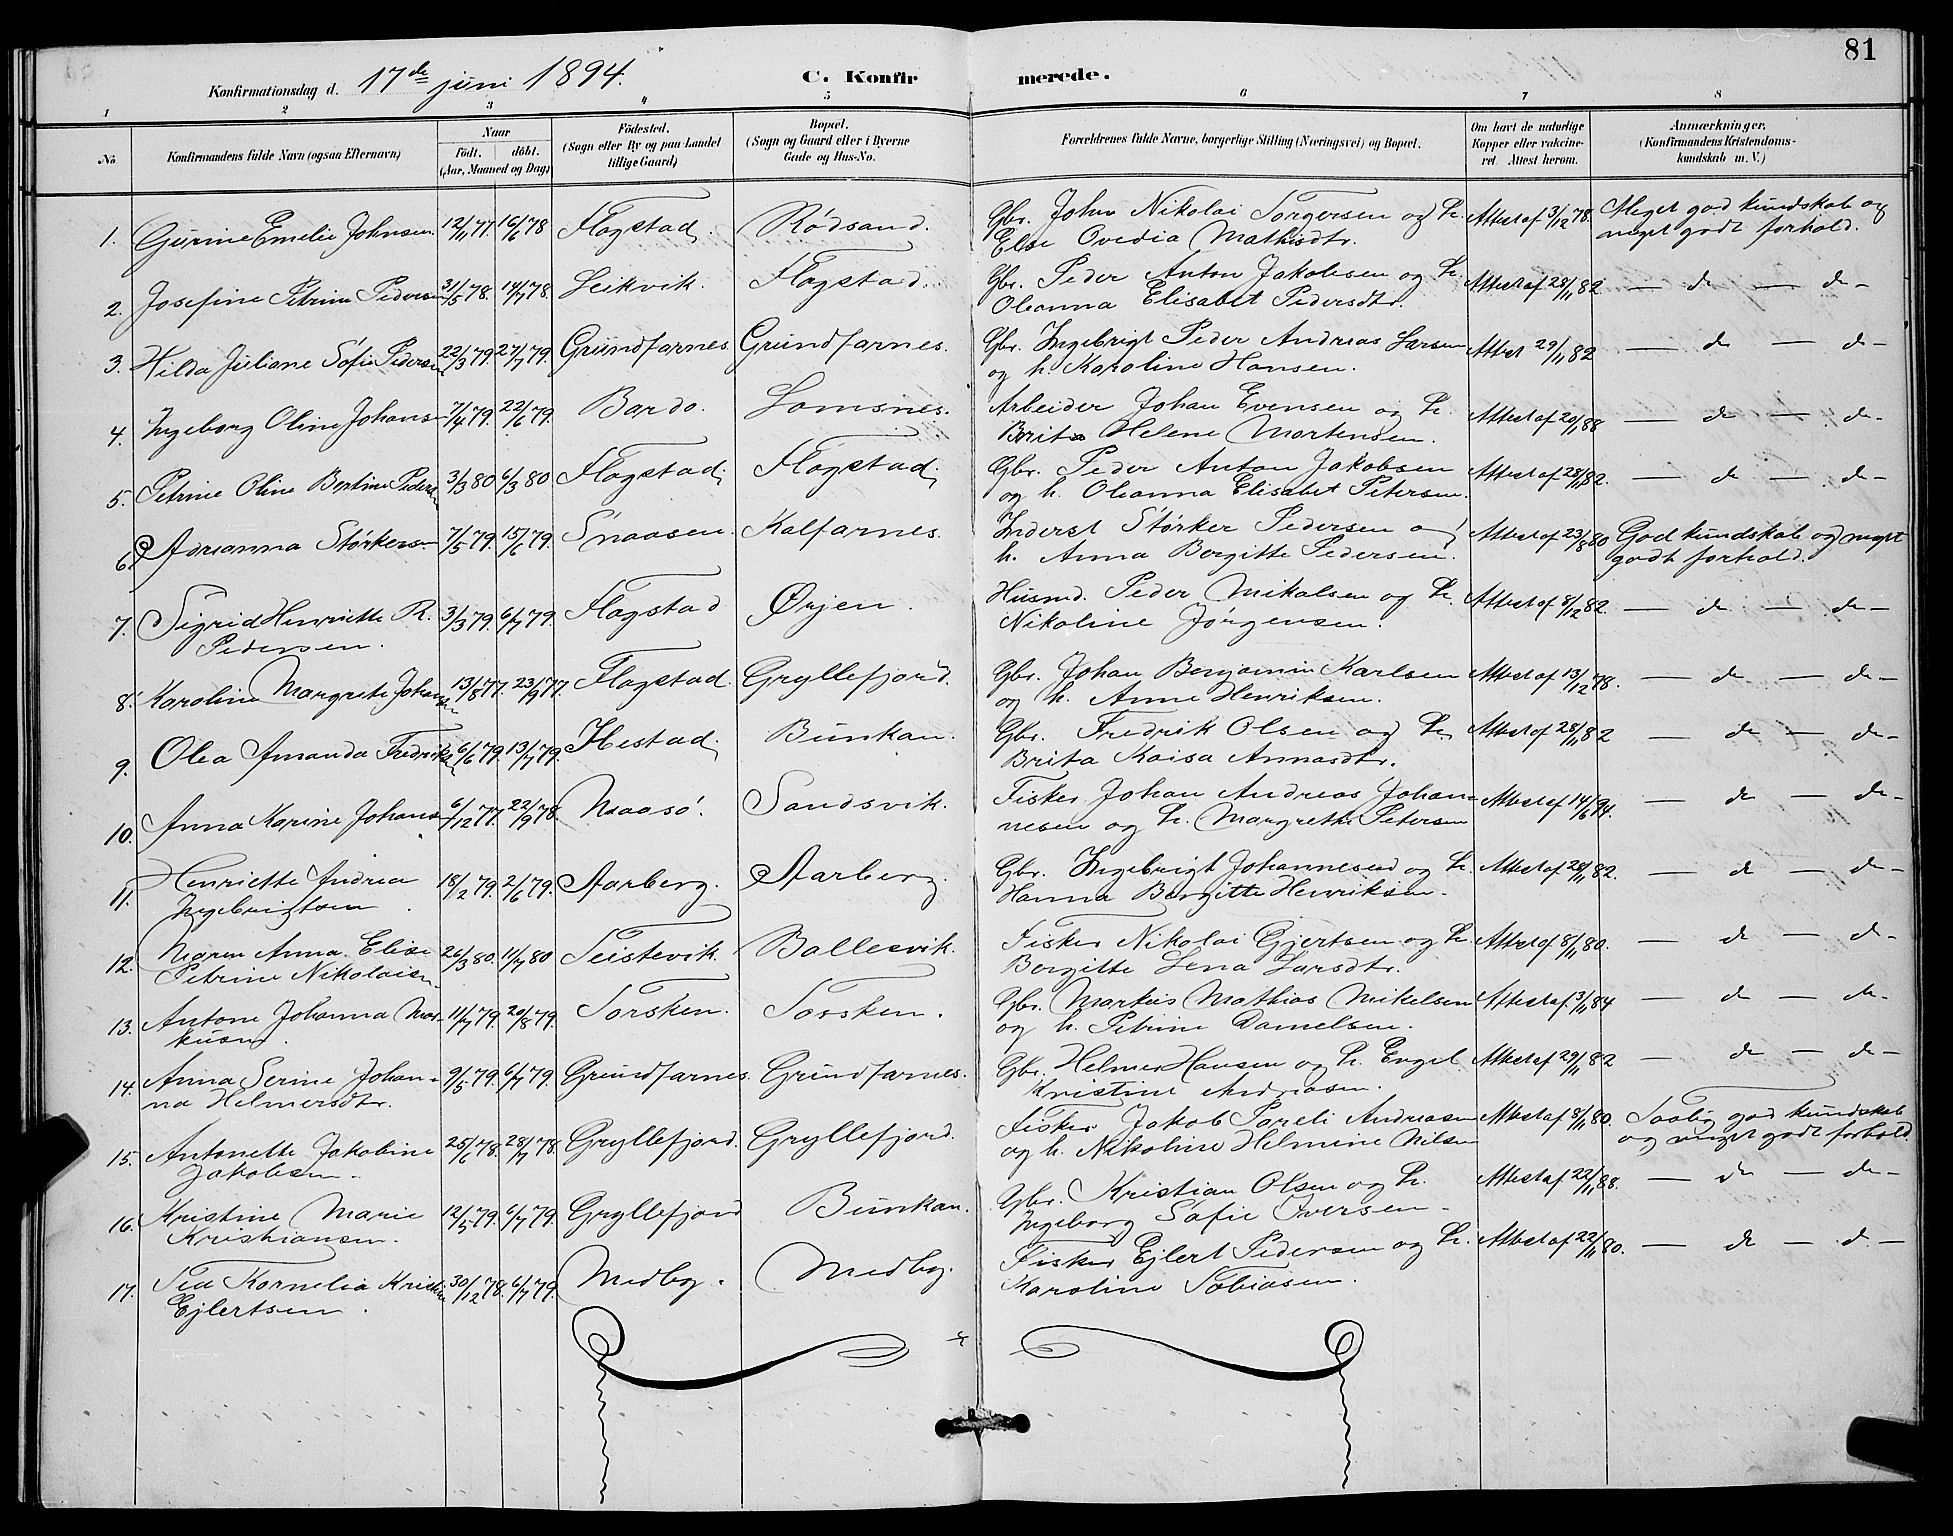 81
Konfirmationsdag d. 17de juni 1894. C. Konfirmerede.
1 2 3 4 5 6 7 8
No
Konfirmandens fulde Navn (ogsaa Efternavn)
Naar
Födt. döbt.
(Aar, Maaned og Dag)
Födested.
(Sogn eller By og paa Landet
tillige Gaard)
Bopæl.
(Sogn og Gaard eller i Byerne
Gade og Hus-No.
Forældrenes fulde Navne, borgerlige Stilling (Næringsvei) og Bopæl.
Om havt de naturlige
Kopper eller vakcine-
ret. Attest herom.
Anmærkninger.
(Konfirmandens Kristendoms-
kundskab m. V.)
1. Gurine Emelie Johnsen 12/11 77. 16/6 78 Flagstad. Rödsand. Gbr. Johan Nikolai Torgersen og h. Attest af 3/12 78. Meget god kundskab og
Else Ovedia Mathisdtr. meget godt forhold.
2. Josefine Petrine Pedersen 31/5 78. 14/7 78. Leikvik. Flagstad. Gbr. Peder Anton Jakobsen og h. Attest af 28/11 82 — do — do —
Oleanna Elisabet Pedersdtr.
3. Hilda Juliane Sofie Pedersen 22/3 79. 27/7 79. Grundfarnes. Grundfarnes. Gbr. Ingebrigt Peder Andreas Larsen Attest 29/11 82 — do — do —
og h. Karoline Hansen.
4. Ingeborg Oline Johans 7/4 79. 22/6 79. Bardo. Lomsnes. Arbeider Johan Evensen og h. Attest af 20/1 88 — do — do —
Brita Helene Mortensen.
5. Petrine Oline Bertine Peders 3/3 80 6/3 80 Flagstad. Flagstad. Gbr. Peder Anton Jakobsen Attest af 28/11 82. — do — do —
og h. Oleanna Elisabet Petersen.
6. Adrianna Störkers 7/5 79. 15/6 79. Snaasen. Kalfarnes. Inderst Störker Pedersen og Attest af 23/8 80 God kundskab og meget
h. Anna Bergitte Pedersen. godt forhold.
7. Sigrid Henriette R. 3/3 79. 6/7 79. Flagstad Ørjen. Husmd. Peder Mikalsen og h. Attest af 8/12 82. — do — do —
Pedersen. Nikoline Jörgensen.
8. Karoline Margrete Johan 13/8 77. 23/9 77. Flagstad. Gryllefjord. Gbr. Johan Benjamin Karlsen Attest af 13/12 78. — do — do —
og h. Anne Henriksen.
9. Olea Amanda Fredriks 6/6 79. 13/7 79. Hestad. Bunkan. Gbr. Fredrik Olsen og h. Attest af 28/11 82 — do — do —
Brita Kaisa Annasdtr.
10. Anna Karine Johans 6/12 77. 22/9 78. Maasö. Sandsvik. Fisker Johan Andreas Johan- Attest af 14/6 94. — do — do —
nesen og h. Margrethe Petersen
11. Henriette Andrea 18/2 79. 2/6 79. Aarberg. Aarberg. Gbr. Ingebrigt Johannesen og h. Attest af 28/11 82. — do — do —
Ingebrigtsen Hanna Bergitte Henriksen.
12. Maren Anna Elise 26/3 80. 11/7 80 Teistevik. Ballesvik. Fisker Nikolai Gjertsen og h. Attest af 8/11 80. — do — do —
Petrine Nikolaisen Bergitte Lena Larsdtr.
13. Antone Johanna Mar- 11/7 79. 20/8 79. Torsken. Torsken. Gbr. Markus Mathias Mikelsen Attest af 3/11 84 — do — do —
kusen. og h. Petrine Danielsen.
14. Anna Serine Johan- 9/5 79. 6/7 79. Grundfarnes. Grundfarnes. Gbr. Helmer Hansen og h. Engel Attest af 29/11 82 — do — do —
na Helmersdtr. Kristine Andreasen.
15. Antonette Jakobine 25/6 78. 28/7 78. Gryllefjord. Gryllefjord. Fisker Jakob Pareli Andreasen Attest af 8/11 80. Taalig god kundskab
Jakobsen. og h. Nikoline Helmine Nilsen og meget godt forhold.
16. Kristine Marie 12/5 79. 6/7 79. Gryllefjord Bunkan. Gbr. Kristian Olsen og h. Attest af 22/11 88. — do — do —
Kristiansen. Ingeborg Sofie Iversen.
17. Tea Kornelia Kristin 30/12 78. 6/7 79. Medby. Medby. Fisker Ejlert Pedersen og h. Attest af 22/11 80. — do — do —
Ejlertsen. Karoline Tobiasen.